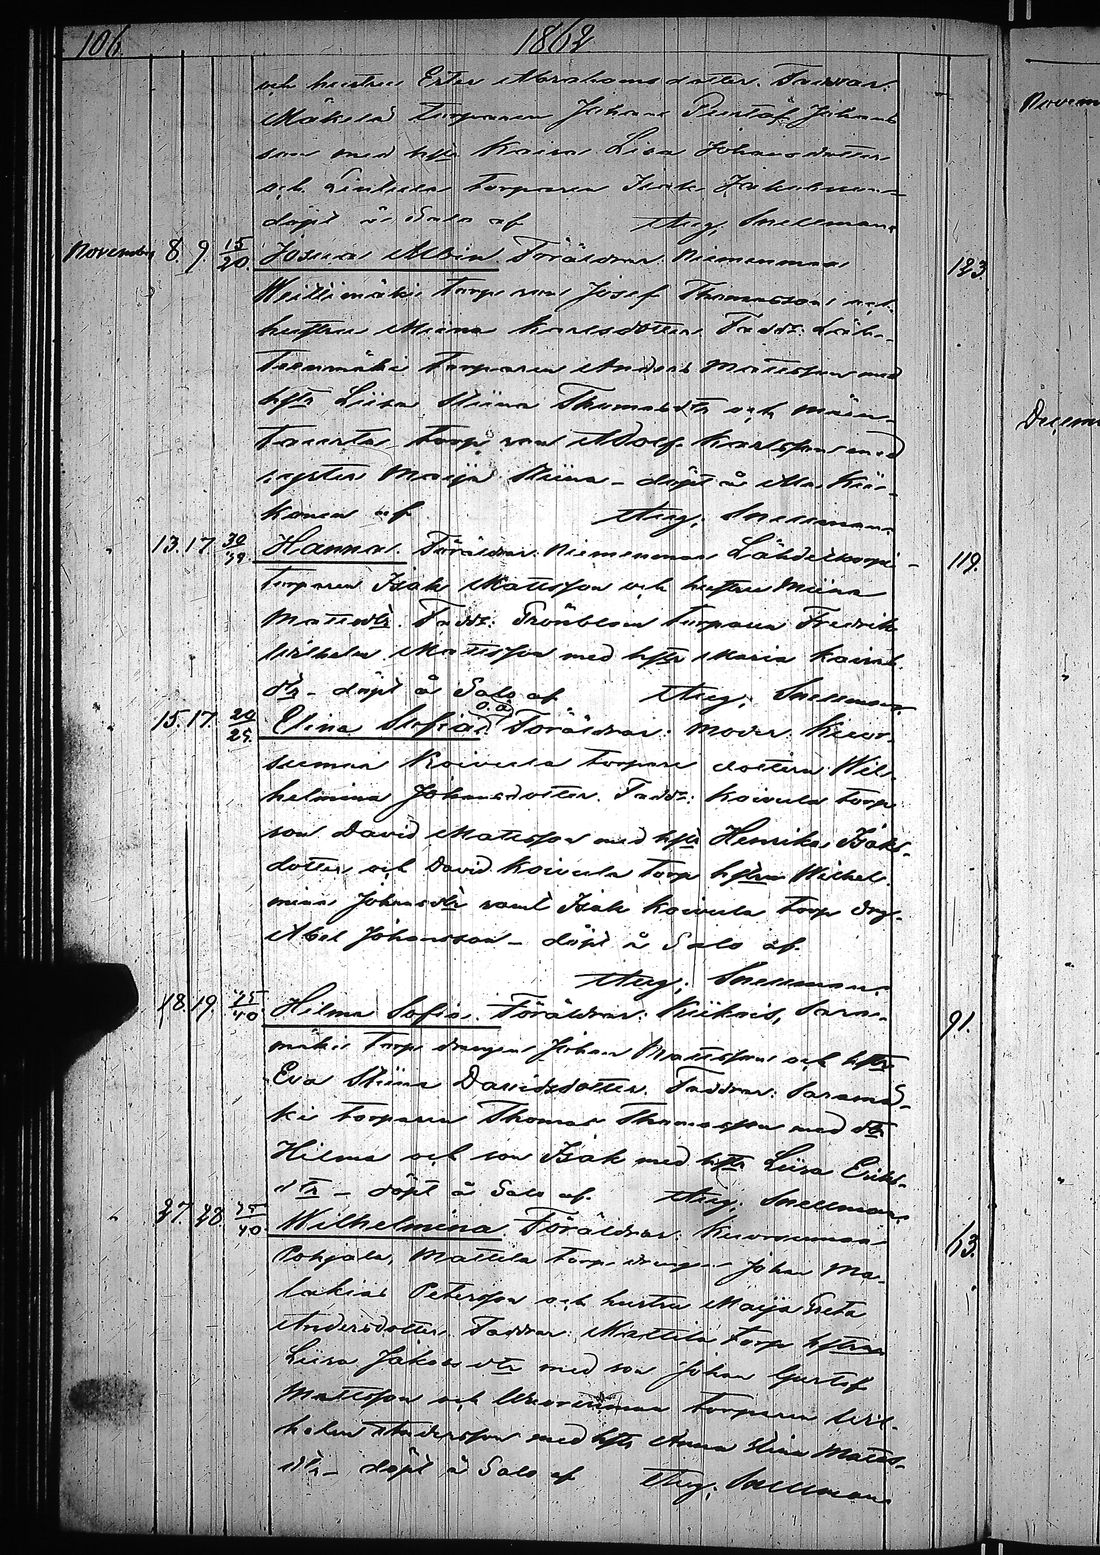 106. 1862
och hustru Ester Abrahamsdotter. Faddrar:
Mäkelä torparen Johan Gustaf Johans
son med hstr Kaisa Lisa Johansdotter
och torparen Isak
döpt å Salo af Aug. Snellman.
November 8. 9. 15/20 Josua Albin. Föräldrar: Niemenmaa 123.
torparen Josef Thomasson och
hustru Miina Karlsdotter. Faddr:
torparen Anders Mattsson med
hstr Liisa Stiina Thomasdtr och
torp. son Adolf Karlsson med
syster Maija Stiina – döpt å
af Aug. Snellman.
13. 17. 30/ Hanna. Föräldrar: Niemenmaa Lähdekorpi 119.
torparen Isak Mattsson och hustru Miina
Mattsdtr. Faddr: torparen Fredrik
Wilhelm Mattsson med hstr Maria
dtr – döpt å Salo af Aug. Snellman.
15. 17. 20/25. Elina Sofia o.ä. Föräldrar: moder:
Koivula torpare dottern Wil-
helmina Johansdotter. Faddr: Koivula torp
son David Mattsson med hstr Henrika Isaks-
dotter och David Koivula torp hstrn Wilhel-
mina Johansdtr samt Isak Koivula torp drg.
Abel Johansson – döpt å Salo af.
Aug. Snellman.
18. 19. 35/40 Hilma Sofia. Föräldrar: Kiikois, Sara- 91.
mäki torp. drengen Johan Mattsson och hstr
Eva Stiina Davidsdotter. Faddrar: Saramä-
ki torparen Thomas Thomasson med dtr
Hilma och son Isak med hstr Liisa Eriks-
dtr – döpt å Salo af. Aug. Snellman.
27. 28. 35/40 Wilhelmina. Föräldrar: 63.
Pohjala, Mattila torp. drengen Johan Ma-
lakias Petersson och hustru Maija Greta
Andersdotter. Faddrar: Mattila torp hstrn
Liisa Jakobsdtr med son Johan Gustaf
Mattsson och torparen Wil-
helm Andersson med hstr Anna Stina Matts-
dtr – döpt å Salo af Aug. Snellman.
Novem
Decem